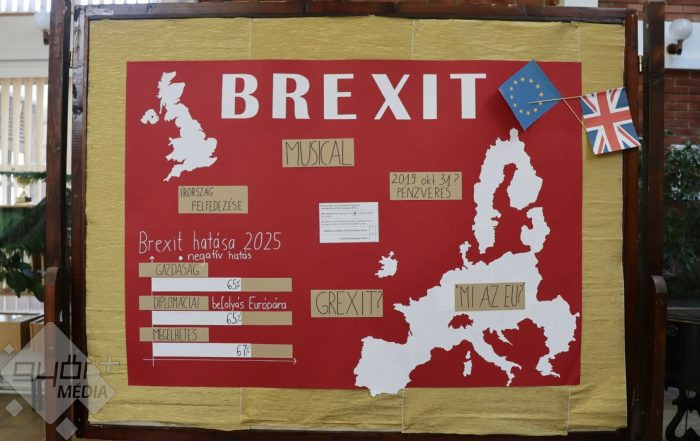 BREXIT
MUSICAL
2019 okt 31?
PÉNZVERÉS
ÍRORSZÁG
FELFEDEZÉSE
Brexit hatása 2025
• negatív hatás
GAZDASÁG
65%
DIPLOMÁCIAI befolyás Európára
65%
MEGÉLHETÉS
67%
GREXIT?
MI AZ EU?
győr+
MÉDIA